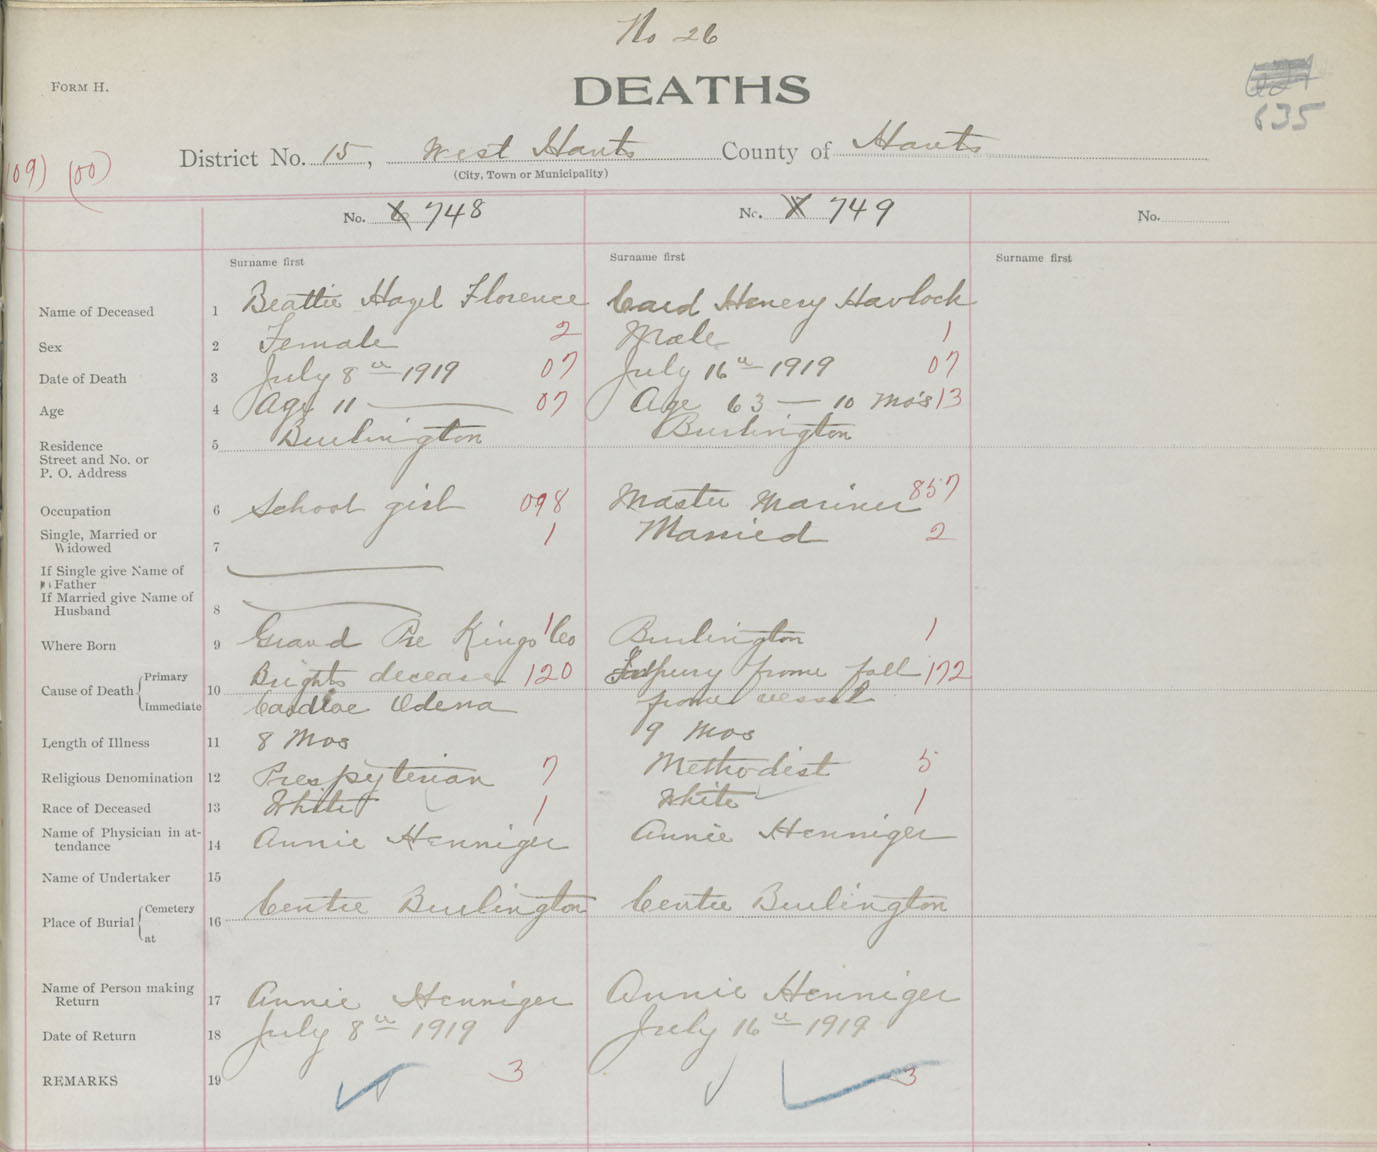 No 26
FORM H.
DEATHS
635
District No. 15, West Hants County of Hants
(City, Town or Municipality)
09) (00)
No. 748 No. 749 No.
Surname first Surname first Surname first
Name of Deceased 1 Beattie Hazel Florence Card Henery Havlock
Sex 2 Female 2 Male 1
Date of Death 3 July 8th 1919 07 July 16th 1919 07
Age 4 Age 11 — 07 Age 63 — 10 Mo's 13
Residence 5 Burlington Burlington
Street and No. or
P. O. Address
Occupation 6 School girl 098 Master Mariner 857
Single, Married or
Widowed 7 1 Married 2
If Single give Name of
Father
If Married give Name of
Husband 8
Where Born 9 Grand Pre Kings Co 1 Burlington 1
Cause of Death Primary 10 Brights decease 120 Injury frome fall 172
Immediate Cardiac Odema frome vessel
Length of Illness 11 8 Mos 9 Mos
Religious Denomination 12 Prespyterian 7 Methodist 5
Race of Deceased 13 White 1 White 1
Name of Physician in at-
tendance 14 Annie Henniger Annie Henniger
Name of Undertaker 15
Place of Burial Cemetery 16 Centre Burlington Centre Burlington
at
Name of Person making
Return 17 Annie Henniger Annie Henniger
Date of Return 18 July 8th 1919 July 16th 1919
REMARKS 19 3 3